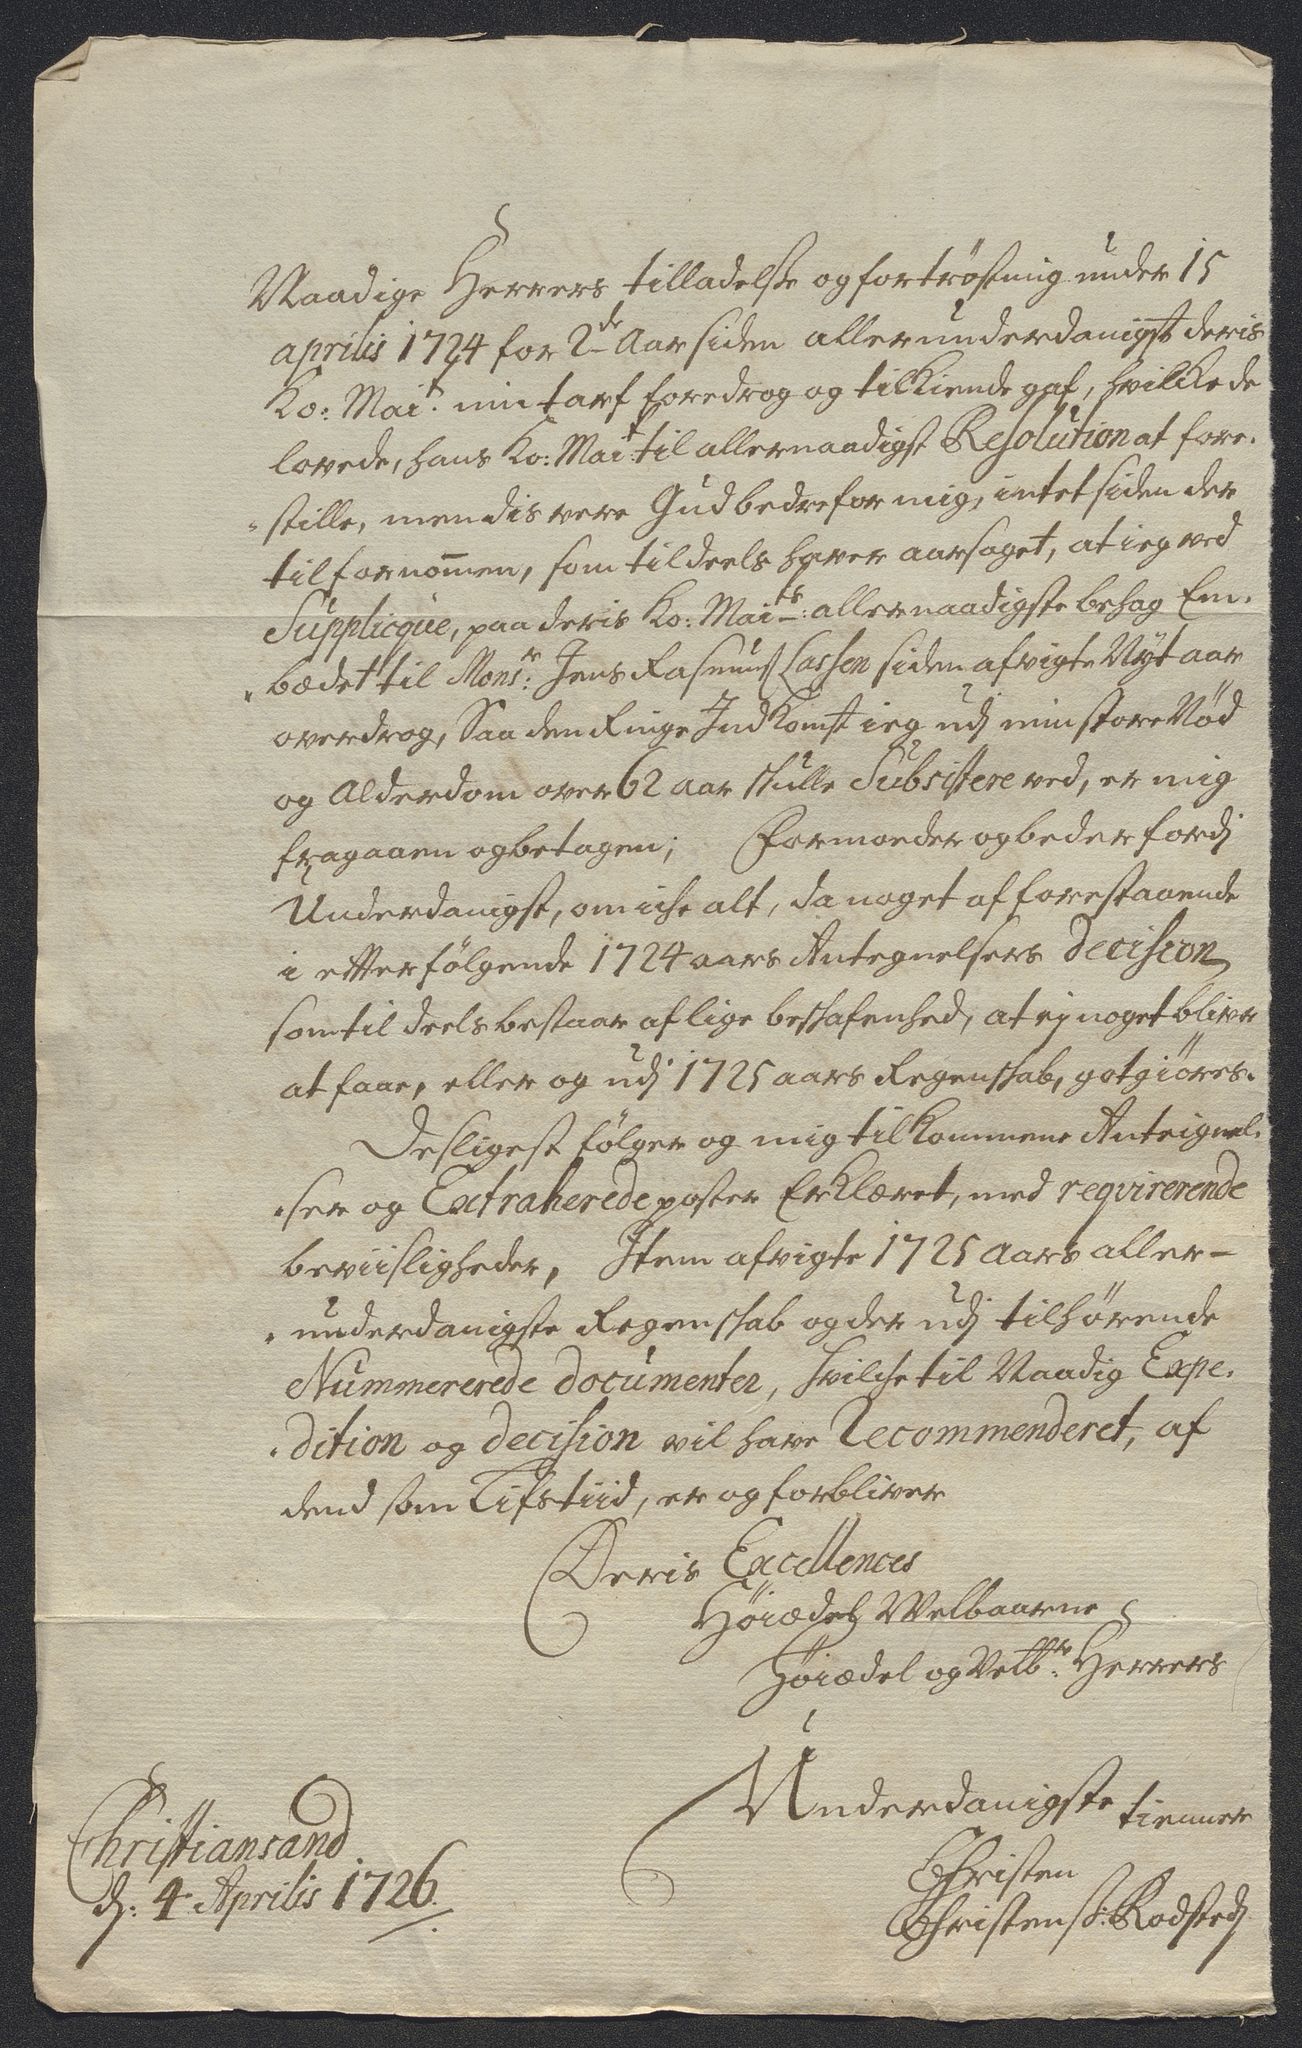 Naadige Herrers tilladelse og fortröstning under 15
aprilis 1724 for 2de Aar siden allerunderdanigst deris
Ko: Mait. min tarf foredrog og tilkiende gaf, hvilcke de
lovede, hans Ko: Mait: til allernaadigst Resolution at fore-
stille, men dis vere Gud bedre for mig, intet siden der
til fornommen, som til deels hæver aarsaget, at ieg ved
Supplicqve, paa deris Ko: Maits: allernaadigste behag Em-
bædet til Monsr: Jens Rasmusß Lassen siden afvigte Nyt aar
overdrog, Saa den Ringe Indkomst ieg udj min store Nød
og Alderdom over 62 aar skulle Subsistere ved, er mig
fragaaen og betagen; Formoder og beder fordj
Underdanigst, om iche alt, da noget af forestaaende
i etterfölgende 1724 aars Antegnelsers decision
som til deels bestaar af lige beskafenhed, at ej noget bliver
at faae, eller og udj 1725 aars Regenskab, gotgiöres.
Desligest fölger og mig tilkommene Anteignel-
ser og Extraherede poster Erklæret, med reqvirerende
beviisligheder, Item afvigte 1725 Aars aller-
underdanigste Regenskab og der udj tilhörende
Nummererede documenter, hvilche til Naadig Expe-
dition og decision vil have Recommenderet, af
dend som Lifstiid, er og forbliver
Deris Excellences
Höiædel Welbaarne
Höiædel og Velbr: Herrers
Underdanigste tienner
Christen
Christensß: Rodsted
Christiansand
d: 4 Aprilis 1726.